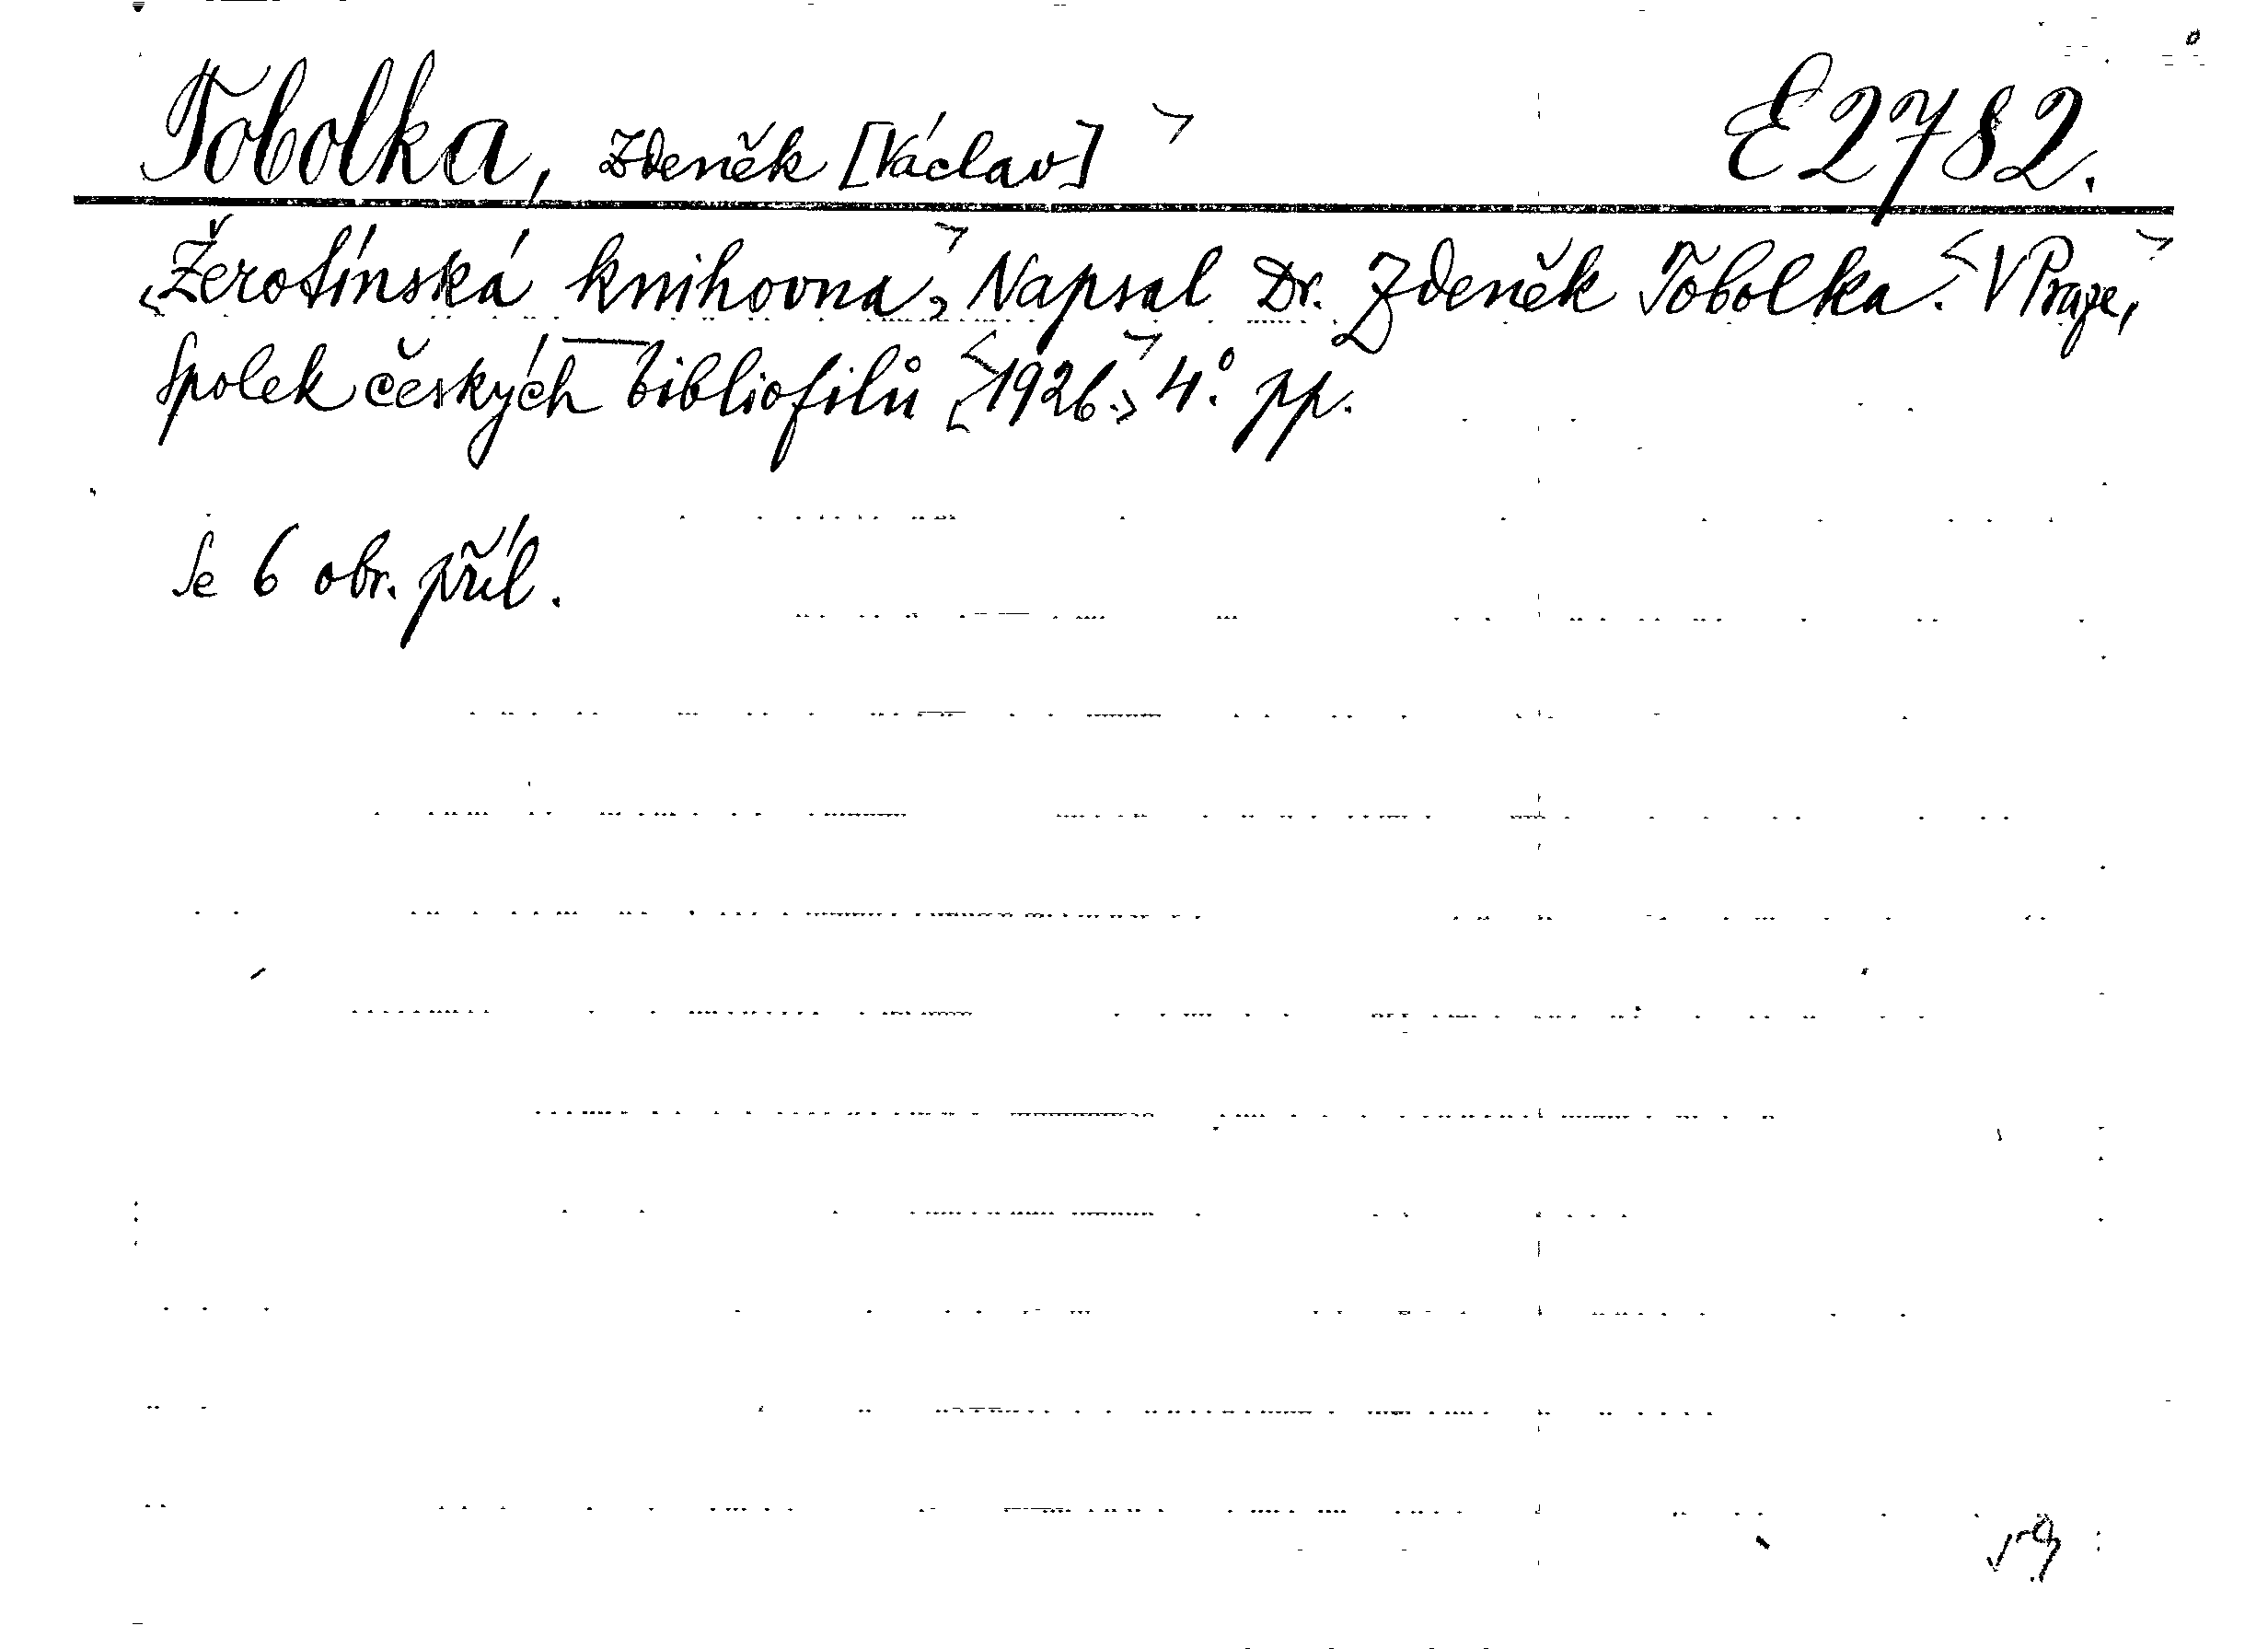 Tobolka, Zdeněk [Václav] E 2782.
Žerotínská knihovna, Napsal Dr. Zdeněk Tobolka. V Praze,
Spolek českých bibliofilů 1926. 4° pp.
Se 6 obr. příl.